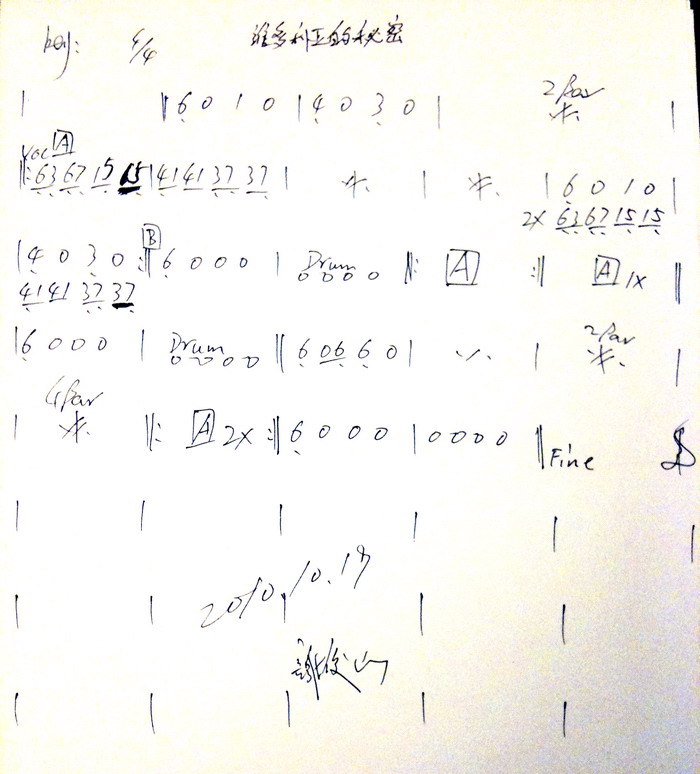 key: 4/4 維多利亞的秘密
| ‖ 6 0 1 0 | 4 0 3 0 | 2 Bar ※ |
Voc A
‖: 63 67 15 15 | 41 41 37 37 | ※ | ※ | 6 0 1 0 |
2X 63 67 15 15
| 4 0 3 0 :‖ B 6 0 0 0 | Drum 0 0 0 0 ‖: A :‖ A 1X ‖
41 41 37 37
| 6 0 0 0 | Drum 0 0 0 0 ‖ 6 06 6 0 | ٪ | 2 Bar ※ |
| 4 Bar ※ ‖: A 2X :‖ 6 0 0 0 | 0 0 0 0 ‖ Fine
2010.10.19
謝俊山